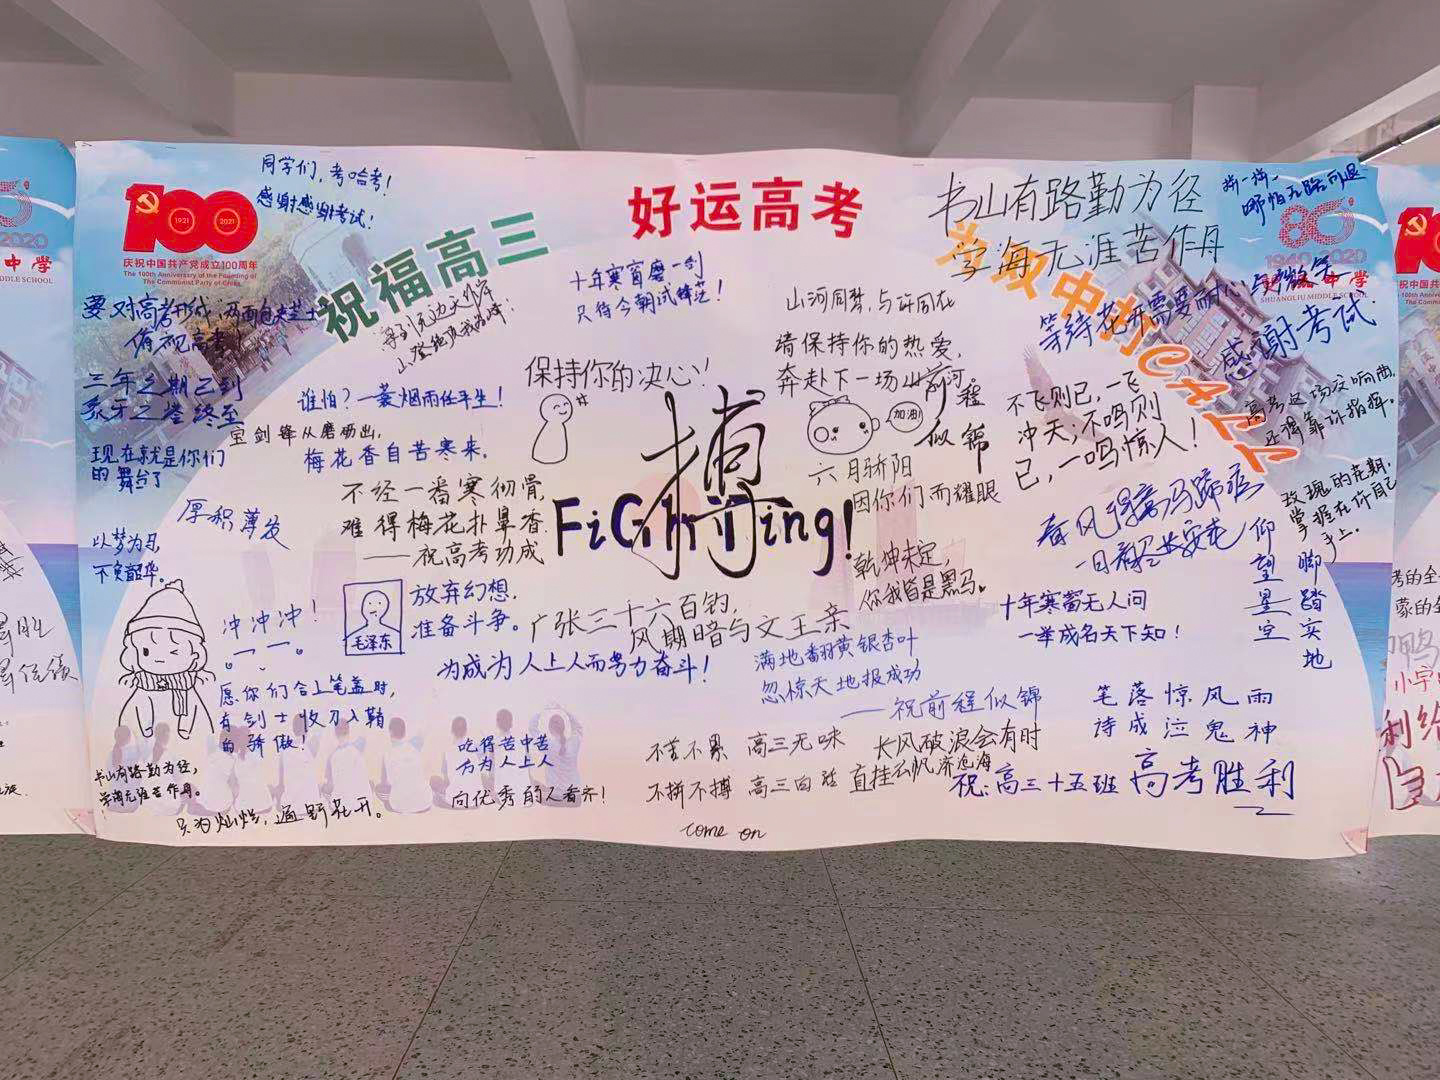 同学们,考哈考!
感谢感谢考试!
100
1921
2021
庆祝中国共产党成立100周年
The 100th Anniversary of the Founding of
The Communist Party of China
祝福高三
好运高考
书山有路勤为径
学海无涯苦作舟
拼一拼,
哪怕无路可退
1940-2020
SHUANGLIU MIDDLE SCHOOL
要对高考开战,两面包夹芝士
俯视高考
海到无边天作岸
山登绝顶我为峰!
十年寒窗磨一剑
只待今朝试锋芒!
山河同梦,与许同在
请保持你的热爱,
奔赴下一场山河
前程
似锦
等待花开需要耐心与
感谢考试!
三年之期已到
象牙之塔终至
现在就是你们
的舞台了
谁怕?一蓑烟雨任平生!
宝剑锋从磨砺出,
梅花香自苦寒来.
保持你的决心!
搏
FiGhting!
加油!
六月骄阳
因你们而耀眼
不飞则已,一飞
冲天;不鸣则
已,一鸣惊人!
高考这场交响曲,
还得靠你指挥。
玫瑰的花期,
掌握在你自己
手上.
不经一番寒彻骨,
难得梅花扑鼻香
——祝高考功成
厚积薄发
以梦为马,
不负韶华。
春风得意马蹄疾
一日看尽长安花
仰望星空
脚踏实地
乾坤未定,
你我皆是黑马。
十年寒窗无人问
一举成名天下知!
冲冲冲!
毛泽东
放弃幻想.
准备斗争。
广张三十六百钓,
风期暗与文王亲
为成为人上人而努力奋斗!
满地翻黄银杏叶
忽惊天地报成功
——祝前程似锦
愿你们合上笔盖时,
有剑士收刀入鞘
的骄傲!
书山有路勤为径,
学海无涯苦作舟.
只为灿烂,遍野花开。
吃得苦中苦
方为人上人
向优秀的人看齐!
不苦不累 高三无味
不拼不搏 高三白活
长风破浪会有时
直挂云帆济沧海
come on
笔落惊风雨
诗成泣鬼神
祝:高三十五班高考胜利